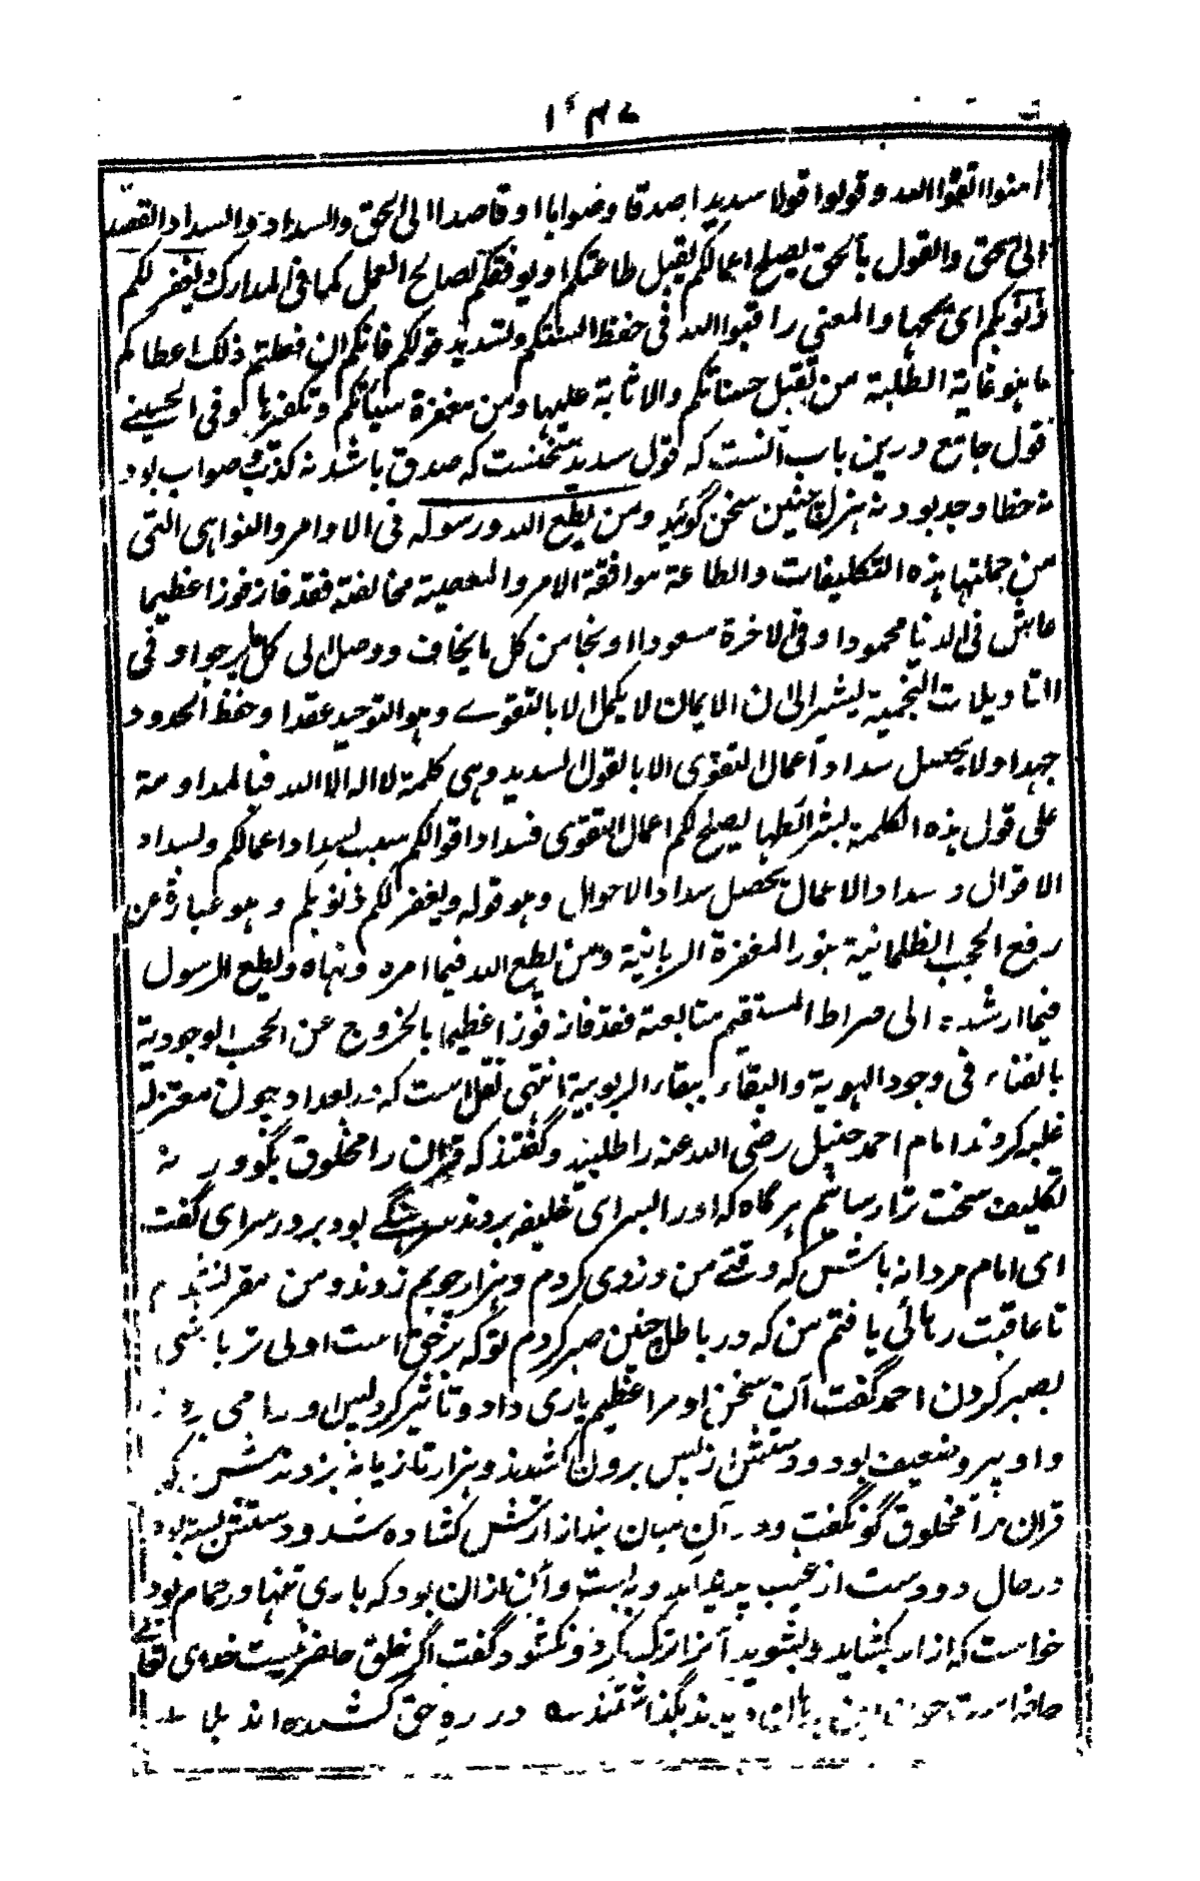 امنوا اتقوا الله وقولوا قولا سديدا صدقا وصوابا او قاصدا الى الحق والسداد والسداد القصد
الى الحق والقول بالحق يصلح اعمالكم يقبل طاعتكم او يوفقكم لصالح العمل كما فى المدارك ويغفر لكم
ذنوبكم اى يمحها والمعنى راقبوا الله فى حفظ السنتكم وتسديد قولكم فانكم ان فعلتم ذلك اعطاكم
ما هو غاية الطلبة من تقبل حسناتكم والاثابة عليها ومن مغفرة سيئاتكم وتكفيرها وفى الحسينى
قول جامع درين باب آنست كه قول سديد سخنست كه صدق باشد نه كذب وصواب بود
نه خطا وجد بود نه هزل چنين سخن گوئيد ومن يطع الله ورسوله فى الاوامر والنواهى التى
من جملتها هذه التكليفات والطاعة موافقة الامر والمعصية مخالفته فقد فاز فوزا عظيما
عاش فى الدنيا محمودا وفى الاخرة مسعودا او نجا من كل ما يخاف ووصل الى كل ما يرجوا وفى
التاويلات النجمية يشير الى ان الايمان لا يكمل الا بالتقوے وهو التوحيد عقدا وحفظ الحدود
جهدا ولا يحصل سداد اعمال التقوى الا بالقول السديد وهى كلمة لا اله الا الله فبالمداومة
على قول هذه الكلمة بشرائطها يصلح لكم اعمال التقوى فسداد اقوالكم سبب لسداد اعمالكم ولسداد
الاقوال وسداد الاعمال يحصل سداد الاحوال وهو قوله ويغفر لكم ذنوبكم وهو عبارة عن
رفع الحجب الظلمانية بنور المغفرة الربانية ومن يطع الله فيما امره ونهاه ويطيع الرسول
فيما ارشده الى صراط المستقيم متابعته فقد فاز فوزا عظيما بالخروج عن الحجب الوجودية
بالفناء فى وجود الهوية والبقاء ببقاء الربوبية انتهى نقل است كه در بغداد چون معتزله
غلبه كردند امام احمد حنبل رضى الله عنه را طلبيد وگفتند كه قران را مخلوق بگو ور نه
تكليف سخت ترا رسانيم هرگاه كه او را بسراى خليفه بردند سرهنگے بود بر در سراى گفت
اى امام مردانه باش كه وقتے من دزدى كردم وهزار چوبم زدند ومن مقر نشدم
تا عاقبت رهائى يافتم من كه در باطل چنين صبر كردم تو كه برحق است اولى تر باشى
بصبر كردن احمد گفت آن سخن او مرا عظيم يارى داد وتاثير كرد پس او را مى بردند
واو پير وضعيف بود ودستش از پس برون كشيدند وهزار تازيانه بزدندش كه
قران را مخلوق گو نگفت ودر آن ميان بند ازارش كشاده شد ودستش بسته بود
در حال دو دست از غيب پديد آمد وببست وآن ازان بود كه بارى تنها در حمام بود
خواست كه ازار بكشايد وبشويد آنرا ترك كرد ونكشود گفت اگر خلق حاضر نيست خداى تعالے
حاضر است چون اين ديدند بگذاشتندش در ره حق كشيده اند بلا